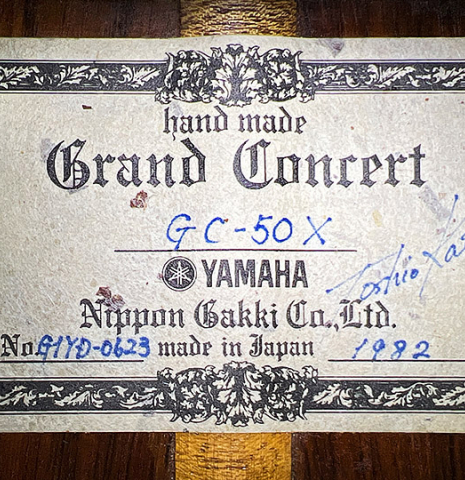 hand made
Grand Concert
GC-50X
YAMAHA
Toshio
Nippon Gakki Co.,Ltd.
No. G1YD-0623 made in Japan 1982